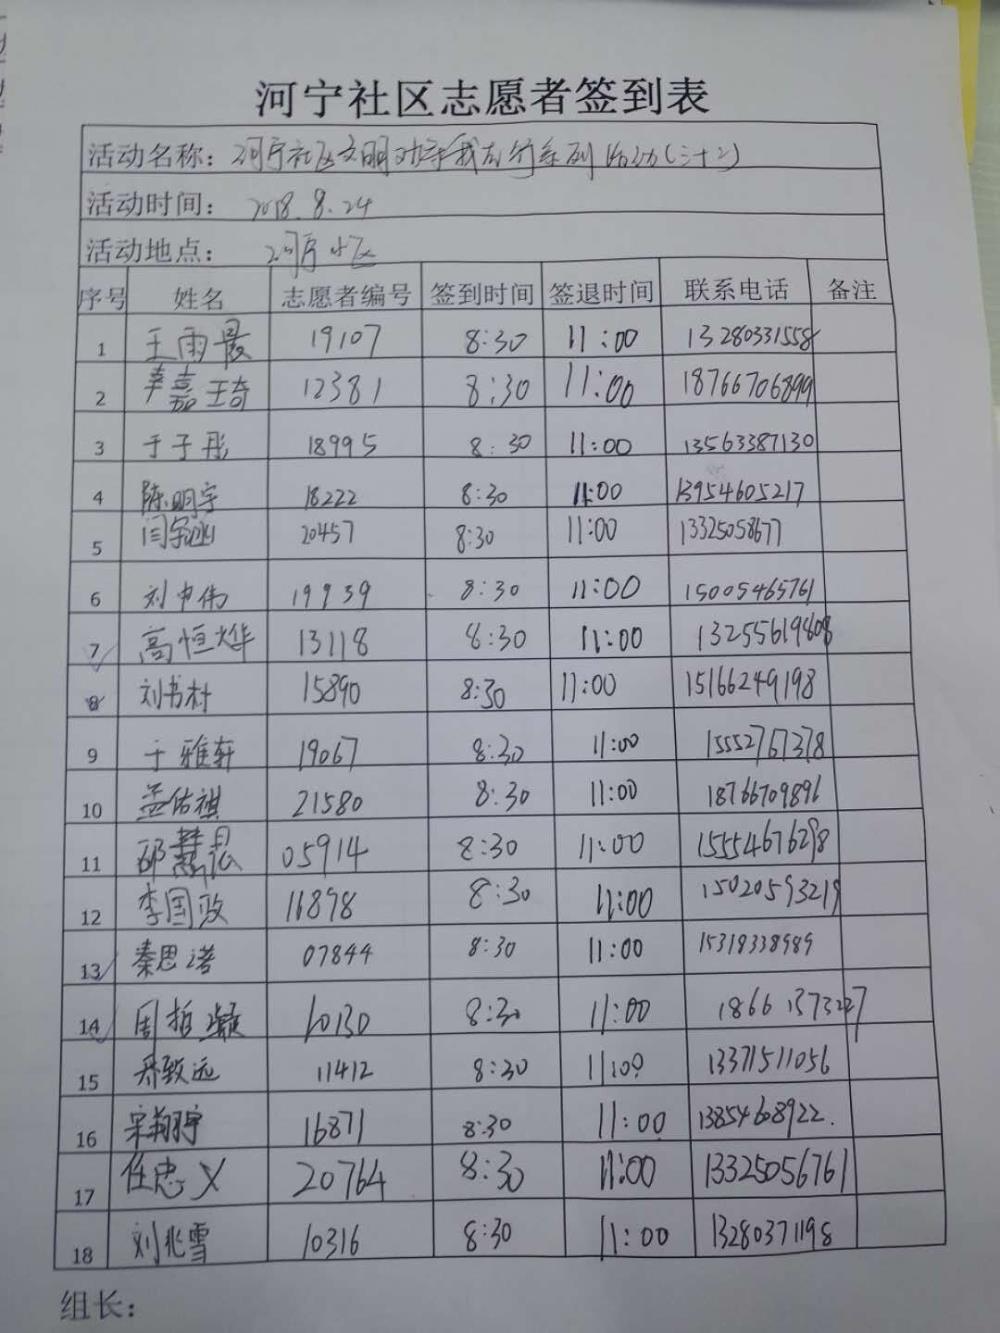 河宁社区志愿者签到表
活动名称：河宁社区文明劝导我先行系列活动(三十二)
活动时间：2018.8.24
活动地点：河宁小区
序号 姓名 志愿者编号 签到时间 签退时间 联系电话 备注
1 王雨晨 19107 8:30 11:00 13280331558
2 嘉琦 12381 8:30 11:00 18766706899
3 于子彤 18995 8:30 11:00 13563387130
4 陈明宇 18222 8:30 11:00 13954605217
5 闫宇涵 20457 8:30 11:00 13325058677
6 刘中伟 19939 8:30 11:00 15005465761
7 高恒烨 13118 8:30 11:00 13255619808
8 刘书村 15890 8:30 11:00 15166249198
9 于雅轩 19067 8:30 11:00 15552767378
10 孟佑祺 21580 8:30 11:00 18766709896
11 邵慧 05914 8:30 11:00 15554676298
12 李国政 16898 8:30 11:00 15020593219
13 秦思诺 07844 8:30 11:00 15318338989
14 周 10130 8:30 11:00 18661373227
15 乔致远 11412 8:30 11:00 13371511056
16 宋翔宇 16871 8:30 11:00 13854608922.
17 任忠义 20764 8:30 11:00 13325056761
18 刘兆雪 10316 8:30 11:00 13280371198
组长：